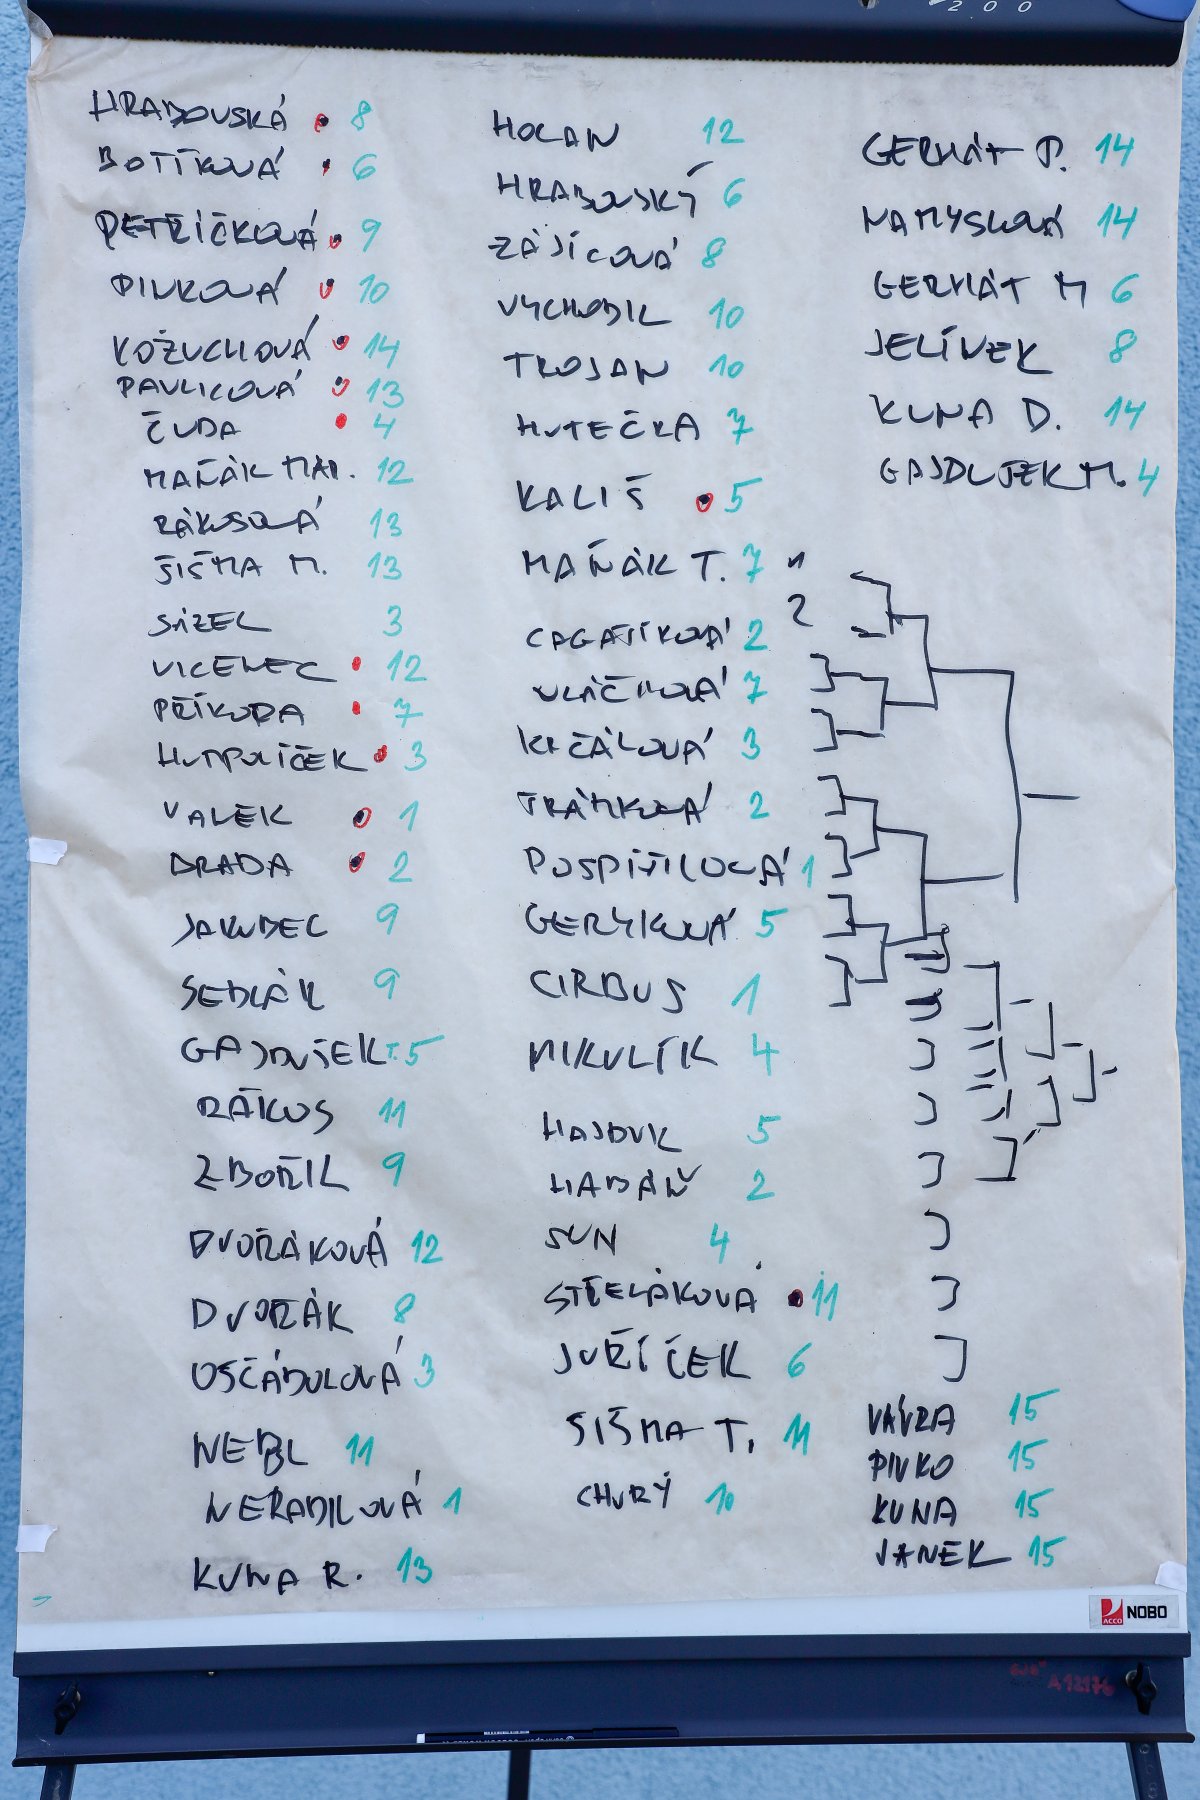 200
HRABOVSKÁ 8
BOTÍKOVÁ 6
PETŘÍČKOVÁ 9
PINKOVÁ 10
KOŽUCHOVÁ 14
PAVLICOVÁ 13
ČUDA 4
MAŇÁK MAR. 12
RÁKOSOVÁ 13
ŠIŠMA M. 13
SÁZEL 3
VICENEC 12
PŘÍKOPA 7
HUMPOLÍČEK 3
VALEK 1
DRADA 2
JAKUBEC 9
SEDLÁK 9
GAJDUŠEK T. 5
RÁKOS 11
ZBOŘIL 9
DVOŘÁKOVÁ 12
DVOŘÁK 8
OSČÁDLOVÁ 3
NEBL 11
NERADILOVÁ 1
KUNA R. 13
HOLAN 12
HRABOVSKÝ 6
ZÁJÍCOVÁ 8
VYCHODIL 10
TROJAN 10
HUTEČKA 7
KALIŠ 5
MAŇÁK T. 7
CAGAŠÍKOVÁ 2
VLÁČILOVÁ 7
KRČÁLOVÁ 3
TRÁMKOVÁ 2
POSPÍŠILOVÁ 1
GERYKOVÁ 5
CIRBUS 1
MIKULÍK 4
HAJDUK 5
HABÁŇ 2
SUN 4
STŘELÁKOVÁ 11
JUŘÍČEK 6
ŠIŠMA T. 11
CHURÝ 10
GERHÁT P. 14
NAMYSLOVÁ 14
GERHÁT M 6
JELÍNEK 8
KUNA D. 14
GAJDUŠEK M. 4
1
2
VÁVRA 15
PINKO 15
KUNA 15
JANEK 15
ACCO NOBO
A12176